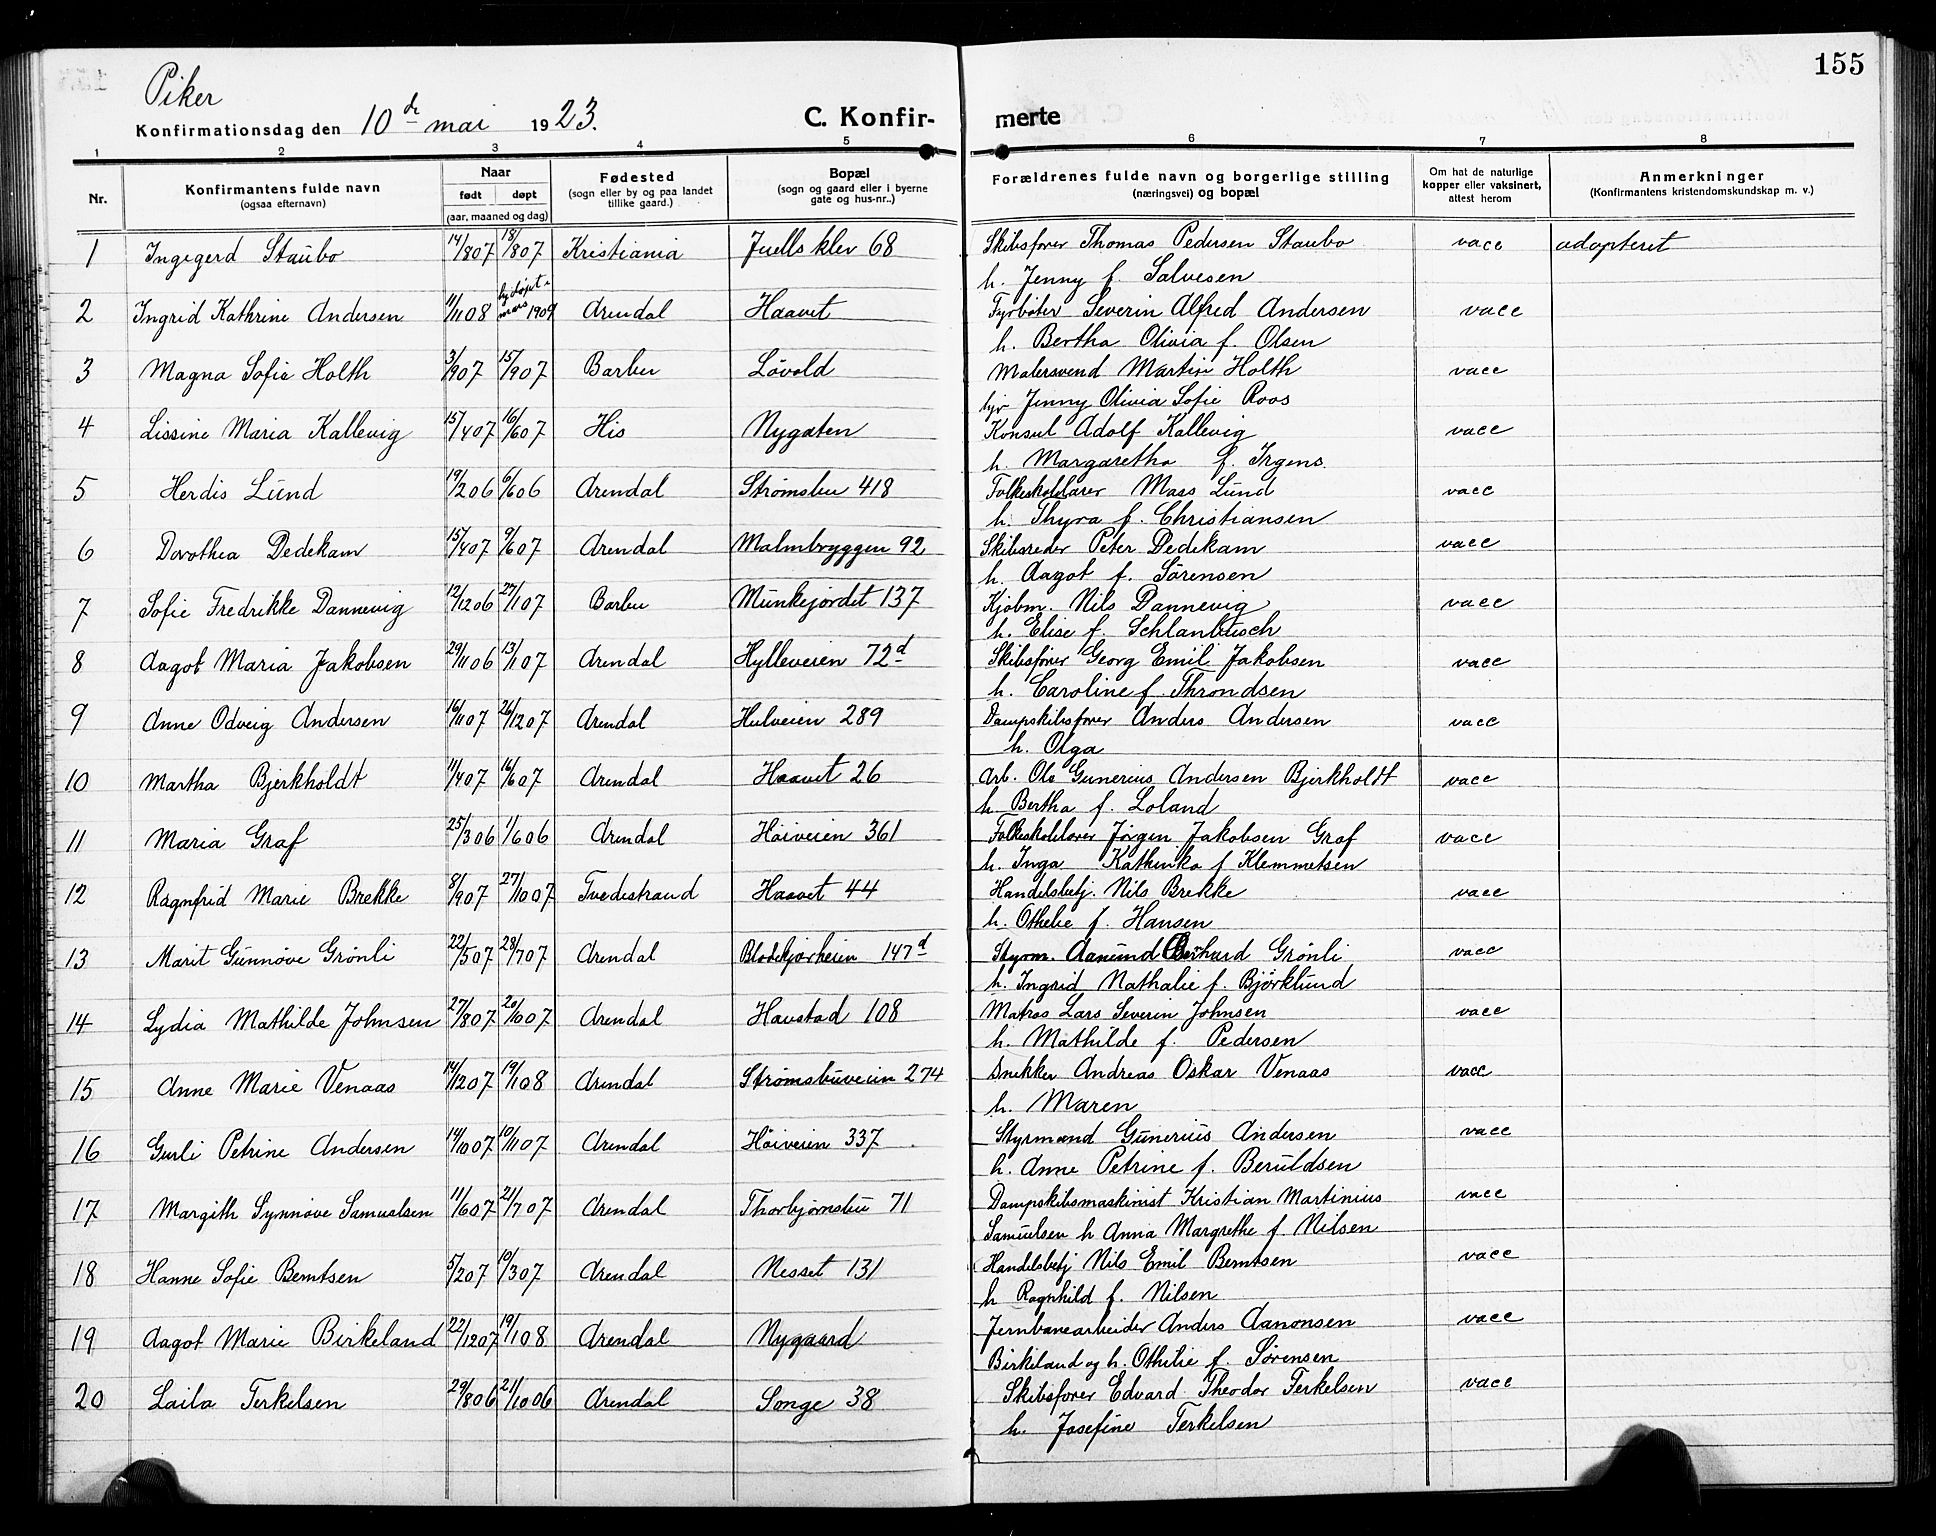 155
Piker
Konfirmationsdag den 10de mai 1923.
C. Konfir- merte
1 2 3 4 5 6 7 8
Nr.
Konfirmantens fulde navn
(ogsaa efternavn)
Naar
født døpt
(aar, maaned og dag)
Fødested
(sogn eller by og paa landet
tillike gaard.)
Bopæl
(sogn og gaard eller i byerne
gate og hus-nr..)
Forældrenes fulde navn og borgerlige stilling
(næringsvei) og bopæl
Om hat de naturlige
kopper eller vaksinert,
attest herom
Anmerkninger
(Konfirmantens kristendomskundskap m. v.)
1 Ingegerd Staubo 14/807 18/807 Kristiania Juells klev 68 Skibsfører Thomas Pedersen Staubo vacc adopteret
h. Jenny f. Salvesen
2 Ingrid Kathrine Andersen 11/1108 hj.døpt mars 1909 Arendal Haavet Fyrbøter Severin Alfred Andersen vacc
h. Bertha Olivia f. Olsen
3 Magna Sofie Holth 3/907 15/907 Barbu Løvold Malersvend Martin Holth vacc
Jenny Olivia Sofie Roos
4 Lissine Maria Kallevig 15/407 16/607 His Nygaten Konsul Adolf Kallevig vacc
h. Margaretha f. Irgens.
5 Herdis Lund 19/206 6/606 Arendal Strømsbu 418 Folkeskolelærer Mass Lund vacc
h. Thyra f. Christiansen
6 Dorothea Dedekam 15/407 9/607 Arendal Malmbryggen 92 Skibsreder Peter Dedekam vacc
h. Aagot f. Sørensen
7 Sofie Fredrikke Dannevig 12/1206 27/107 Barbu Munkejordet 137 Kjøbm. Nils Dannevig vacc
h. Elise f. Schlanbusch
8 Aagot Maria Jakobsen 29/1106 13/107 Arendal Hylleveien 72d Skibsfører Georg Emil Jakobsen vacc
h. Caroline f. Throndsen
9 Anne Odveig Andersen 16/1107 26/1207 Arendal Hulveien 289 Dampskibsfører Anders Andersen vacc
h. Olga
10 Martha Bjerkholdt 11/407 16/607 Arendal Haavet 26 Arb. Ole Gunerius Andersen Bjerkholdt vacc
h. Bertha f. Loland
11 Maria Graf 25/306 1/606 Arendal Høiveien 361 Folkeskolelærer Jørgen Jakobsen Graf vacc
h. Inga Kathinka f. Klemmetsen
12 Ragnfrid Marie Brekke 8/907 27/1007 Tvedestrand Haavet 44 Handelsbetj. Nils Brekke vacc
h. Othelie f. Hansen
13 Marit Gunnøve Grønli 22/507 28/707 Arendal Blødekjørheien 147d Styrm. Aanund Gerhard Grønli vacc
h. Ingrid Nathalie f. Bjørklund
14 Lydia Mathilde Johnsen 27/807 20/1007 Arendal Havstad 108 Matros Lars Severin Johnsen vacc
h. Mathilde f. Pedersen
15 Anne Marie Venaas 14/1207 19/108 Arendal Strømsbuveien 274 Snekker Andreas Oskar Venaas vacc
h. Maren
16 Gurli Petrine Andersen 14/1007 10/1107 Arendal Høiveien 337 Styrmand Gunerius Andersen vacc
h. Anne Petrine f. Beruldsen
17 Margith Synnøve Samuelsen 11/607 21/707 Arendal Thorbjørnsbu 71 Dampskibsmaskinist Kristian Martinius vacc
Samuelsen h Anna Margrethe f. Nilsen
18 Hanne Sofie Berntsen 5/207 10/307 Arendal Nesset 131 Handelsbetj Nils Emil Berntsen vacc
h Ragnhild f. Nilsen
19 Aagot Marie Birkeland 22/1207 19/108 Arendal Nygaard Jernbanearbeider Anders Aanonsen vacc
Birkeland og h. Othilie f. Sørensen
20 Laila Terkelsen 29/806 21/1006 Arendal Songe 38 Skibsfører Edvard Theodor Terkelsen vacc
h. Josefine Terkelsen